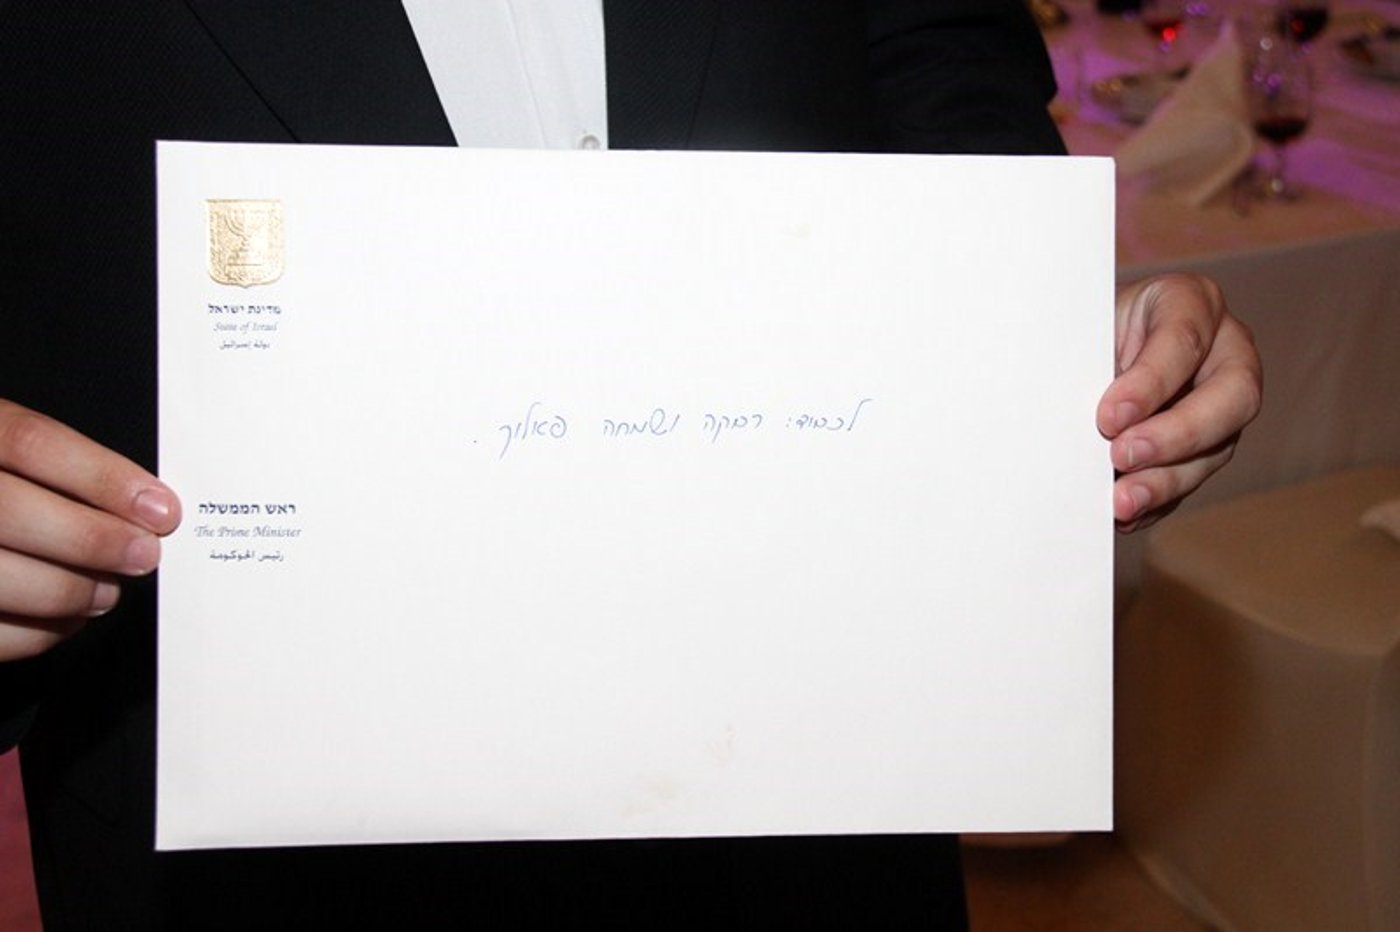 מדינת ישראל
State of Israel
دولة إسرائيل
לכבוד: רבקה ושמחה פאלוך.
ראש הממשלה
The Prime Minister
رئيس الحوكومة